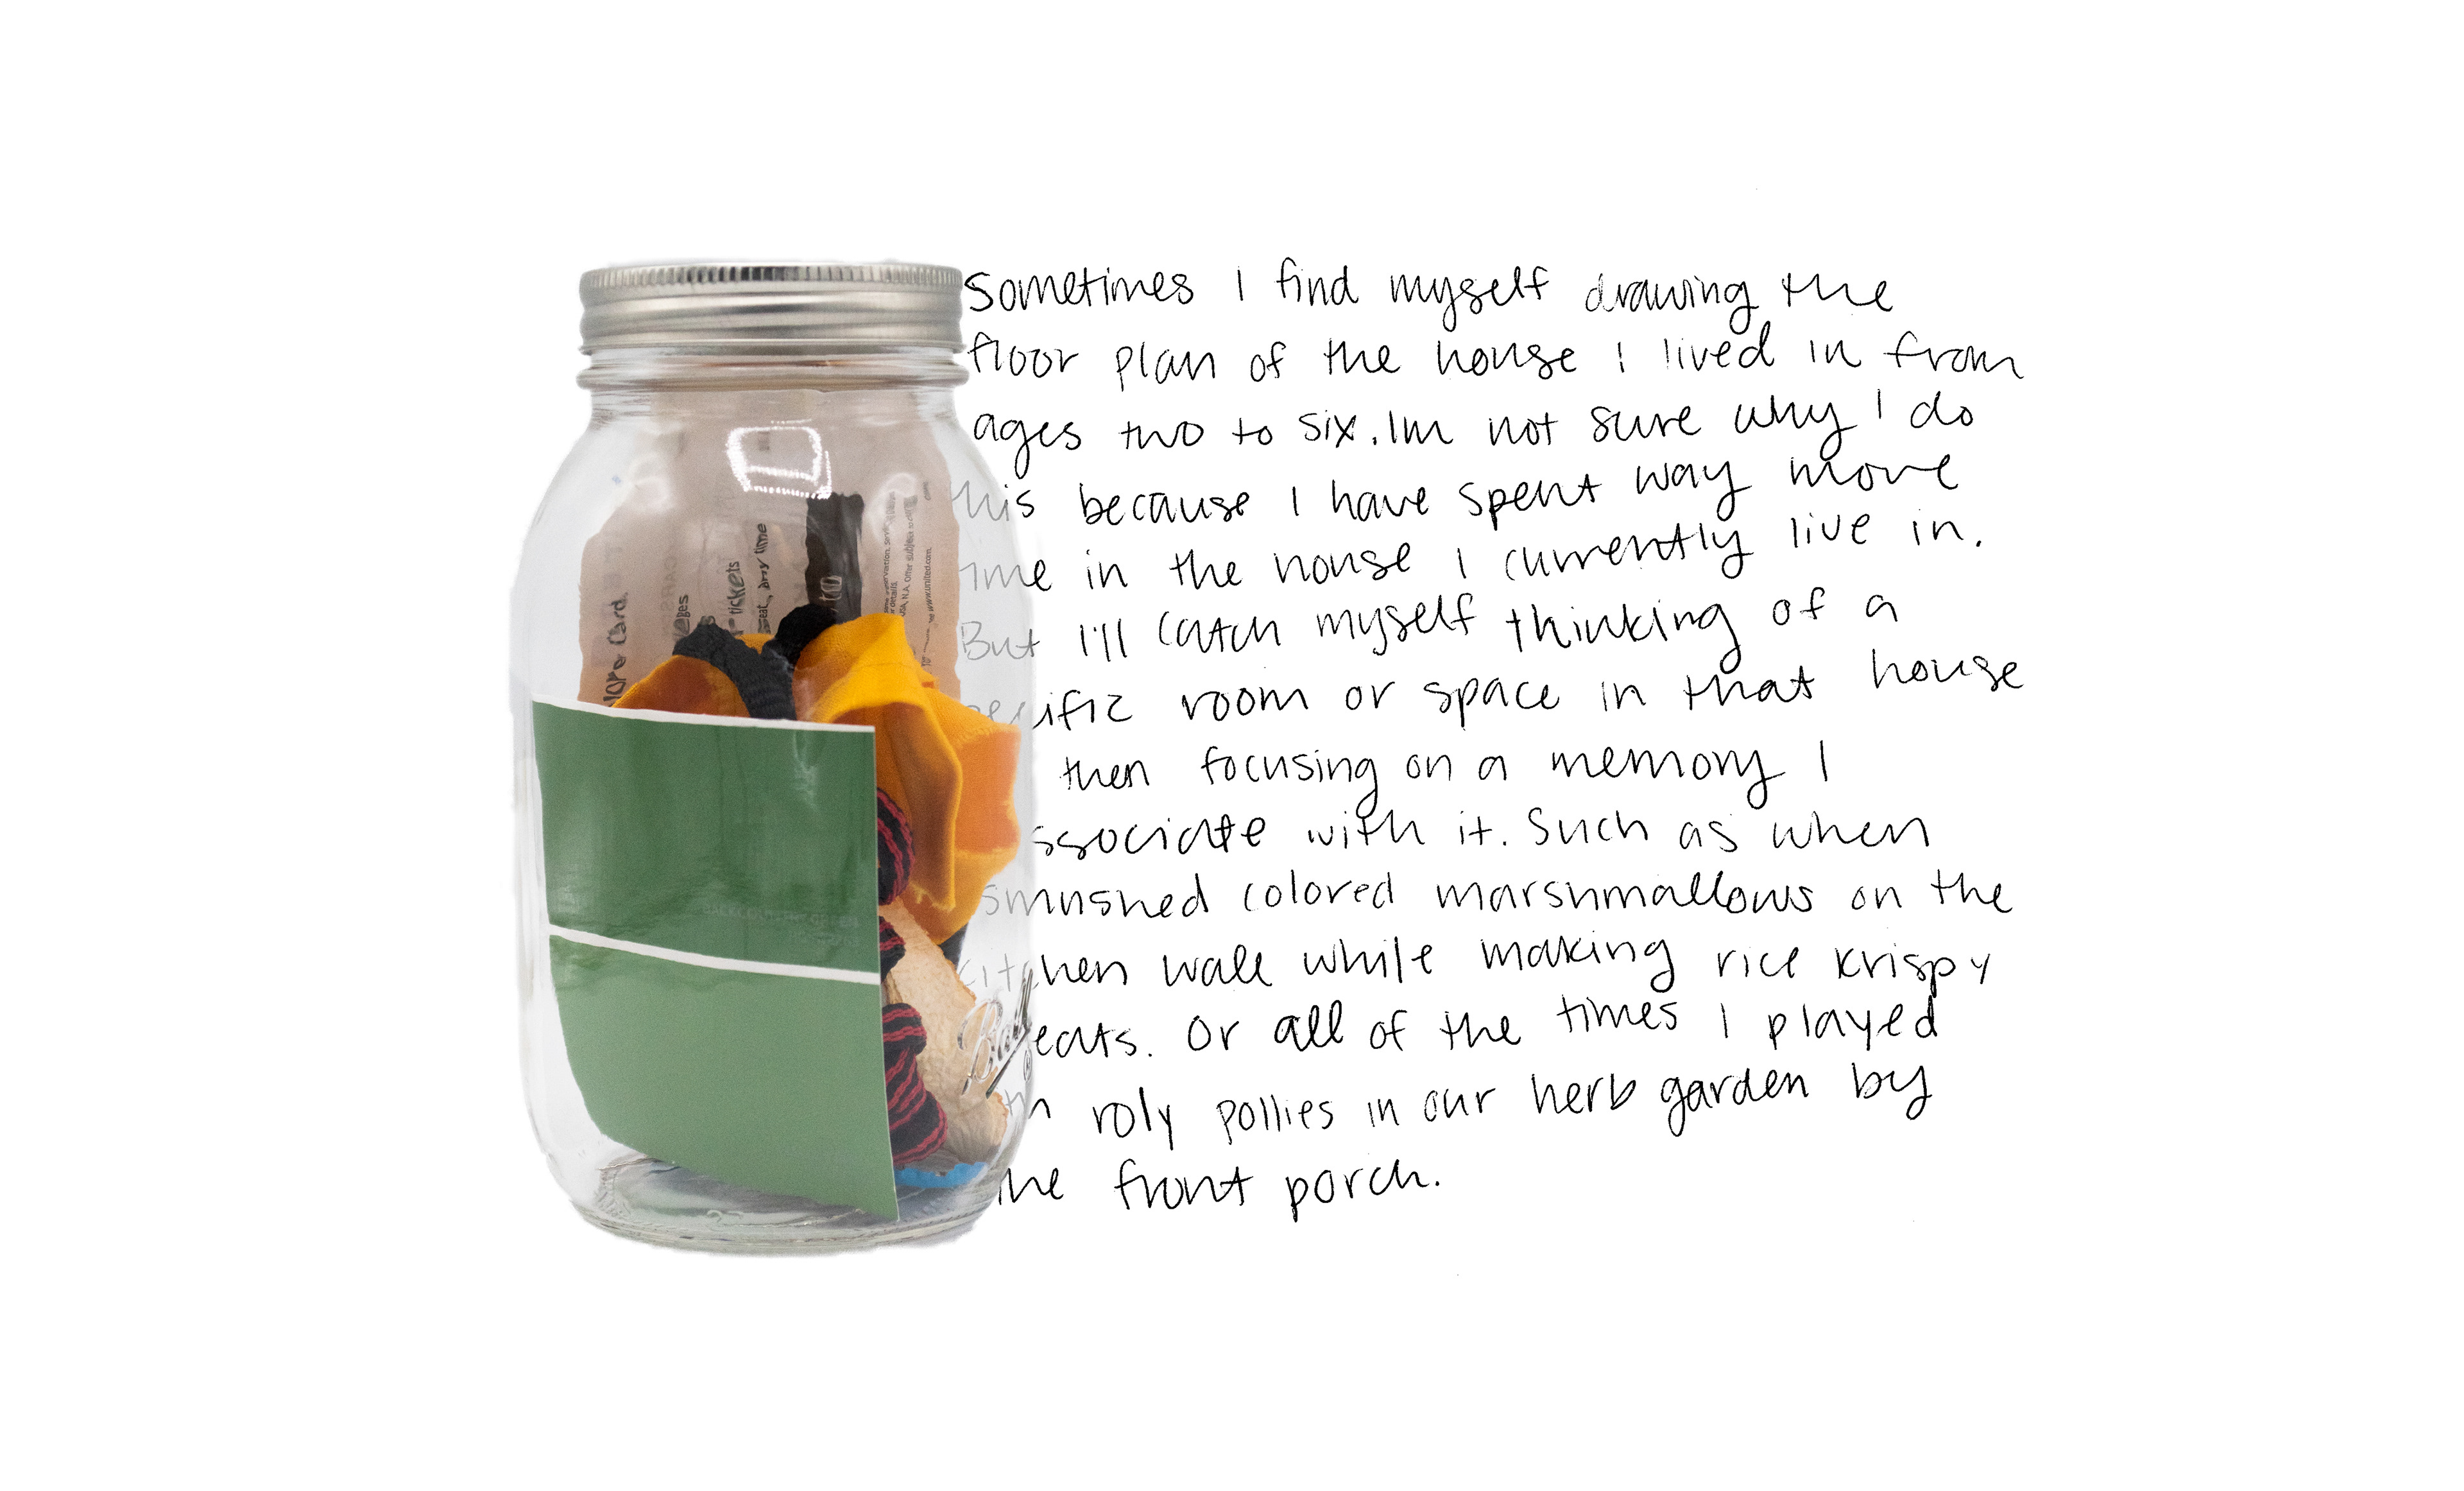 Sometimes I find myself drawing the
floor plan of the house I lived in from
ages two to six. Im not sure why I do
this because I have spent way more
time in the house I currently live in.
But I'll catch myself thinking of a
specific room or space in that house
then focusing on a memory I
associate with it. Such as when
smushed colored marshmallows on the
kitchen wall while making rice krispy
treats. Or all of the times I played
with roly pollies in our herb garden by
the front porch.
Card.
tickets
any time
to
www.united.com
Ball